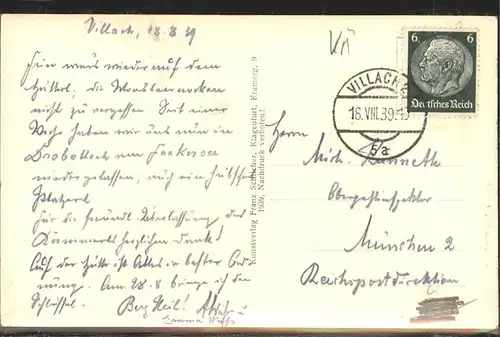 Villach, 18.8.39
Fein war's wieder auf dem
Hütterl, die
nicht zu vergessen. Seit einer
Woche haben wir uns nun in
Drobollach am Faakersee
niedergelassen, auch ein hübsches
Platzerl
Für die freundl. Überlassung des
Kämmerls herzlichen Dank!
Auf der Hütte ist Alles in bester Ord-
nung. Am 28.8 bringe ich den
Schlüssel. Berg Heil!
Kunstverlag Franz Schilcher, Klagenfurt, Kramerg. 9
1939, Nachdruck verboten!
6 6
Deutsches Reich
VILLACH 2
18.VIII.39
5a
Herrn
Mich.
München 2
Reichspostdirektion